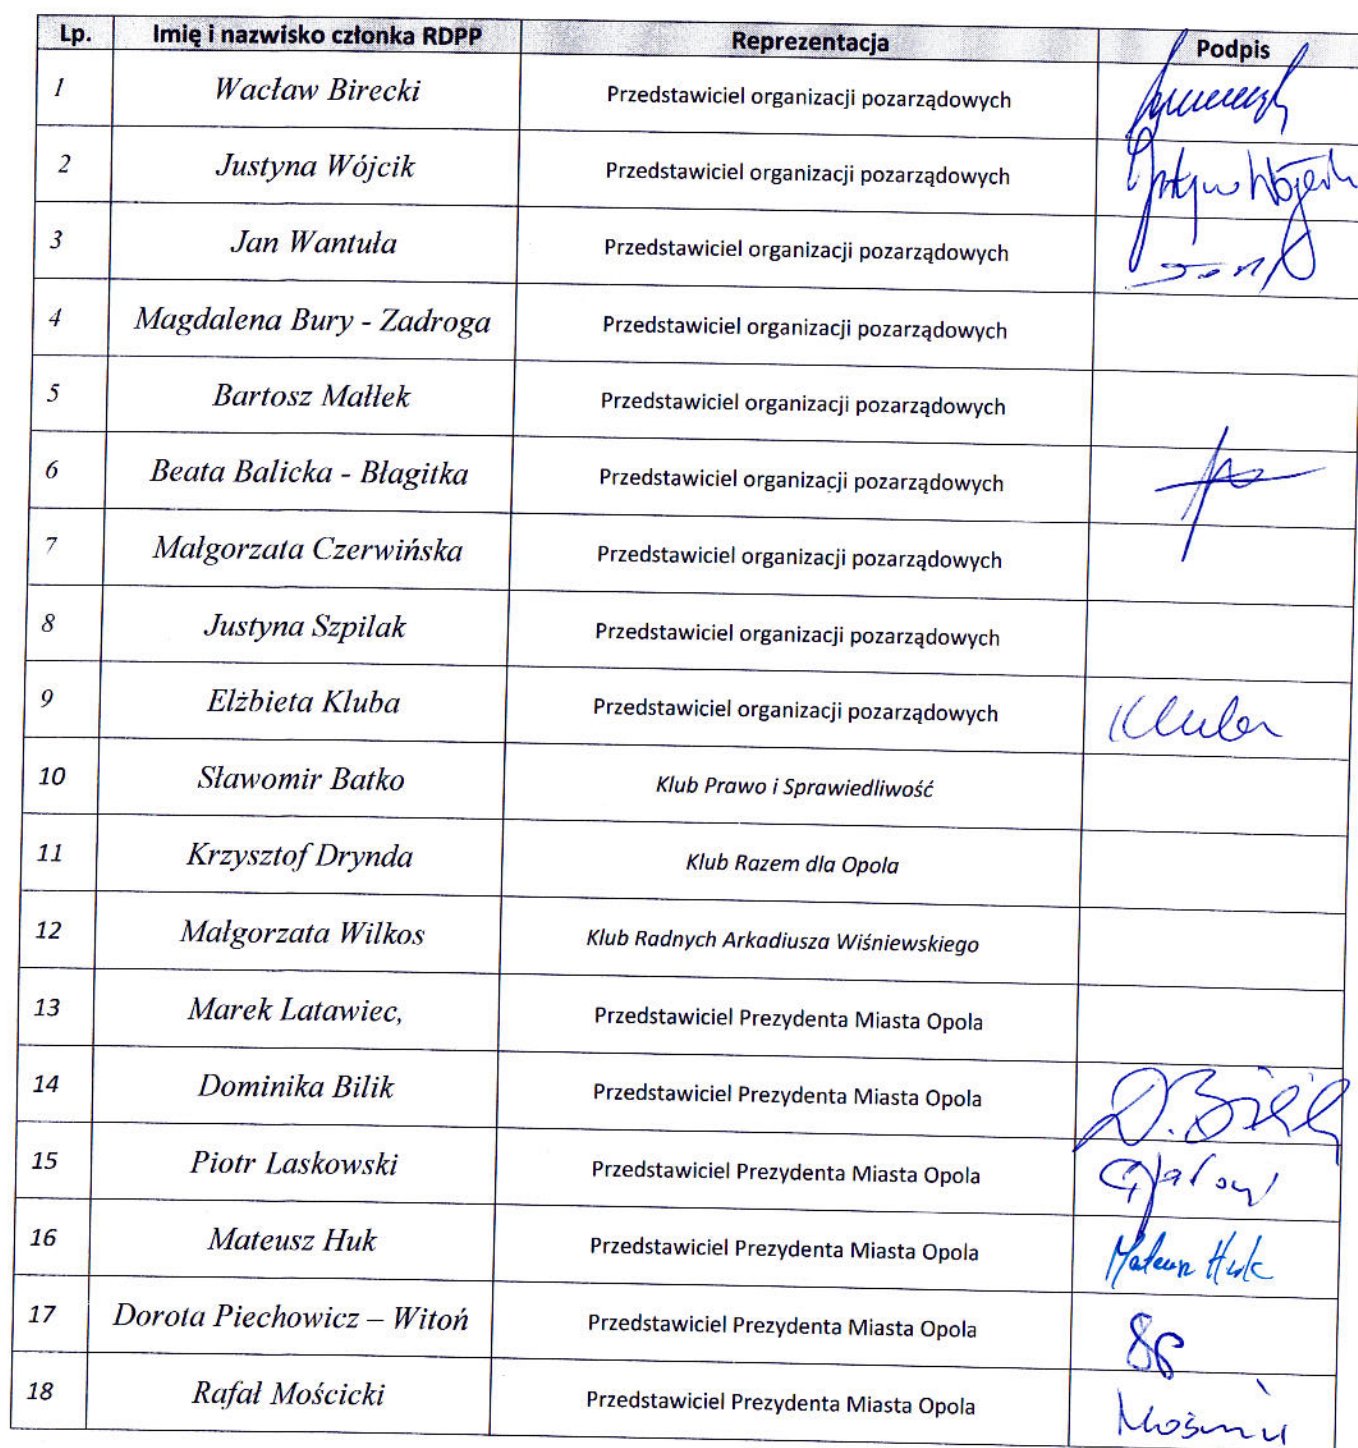 Lp. Imię i nazwisko członka RDPP Reprezentacja Podpis
1 Wacław Birecki Przedstawiciel organizacji pozarządowych
2 Justyna Wójcik Przedstawiciel organizacji pozarządowych Justyna Wójcik
3 Jan Wantuła Przedstawiciel organizacji pozarządowych
4 Magdalena Bury - Zadroga Przedstawiciel organizacji pozarządowych
5 Bartosz Małłek Przedstawiciel organizacji pozarządowych
6 Beata Balicka - Błagitka Przedstawiciel organizacji pozarządowych
7 Małgorzata Czerwińska Przedstawiciel organizacji pozarządowych
8 Justyna Szpilak Przedstawiciel organizacji pozarządowych
9 Elżbieta Kluba Przedstawiciel organizacji pozarządowych Kluba
10 Sławomir Batko Klub Prawo i Sprawiedliwość
11 Krzysztof Drynda Klub Razem dla Opola
12 Małgorzata Wilkos Klub Radnych Arkadiusza Wiśniewskiego
13 Marek Latawiec, Przedstawiciel Prezydenta Miasta Opola
14 Dominika Bilik Przedstawiciel Prezydenta Miasta Opola D. Bilik
15 Piotr Laskowski Przedstawiciel Prezydenta Miasta Opola
16 Mateusz Huk Przedstawiciel Prezydenta Miasta Opola Mateusz Huk
17 Dorota Piechowicz – Witoń Przedstawiciel Prezydenta Miasta Opola
18 Rafał Mościcki Przedstawiciel Prezydenta Miasta Opola